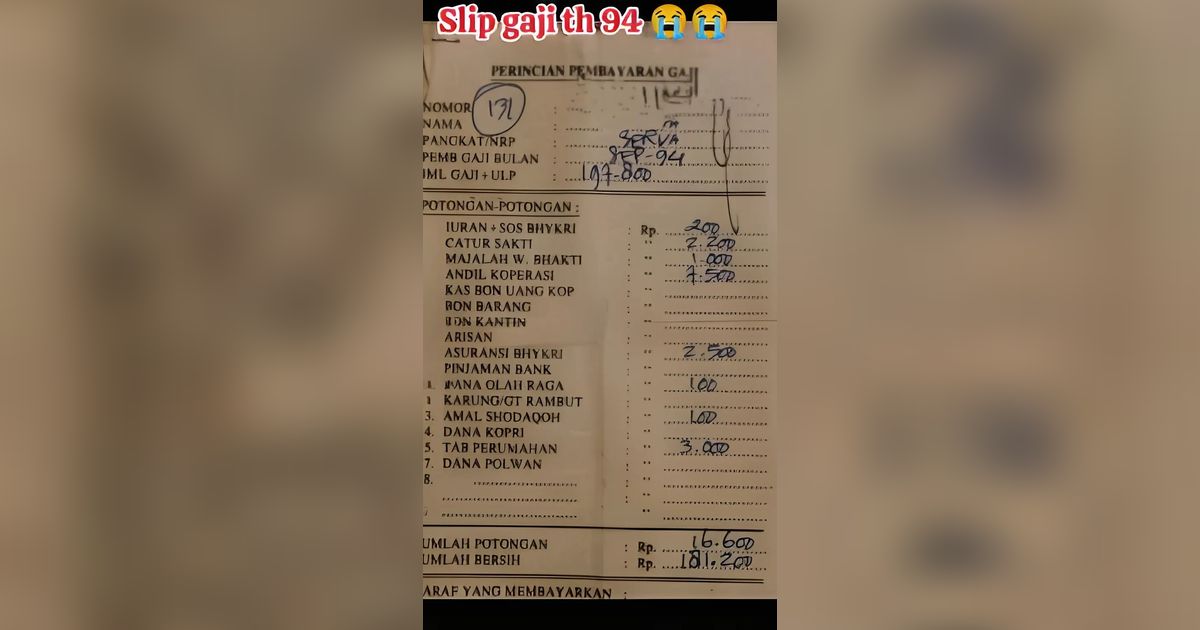 Slip gaji th 94 😭😭
PERINCIAN PEMBAYARAN GAJI
NOMOR : 131
NAMA :
PANGKAT/NRP : SERVA
PEMB GAJI BULAN : SEP-94
JML GAJI + ULP : 197.800
POTONGAN-POTONGAN :
IURAN + SOS BHYKRI : Rp. 200
CATUR SAKTI : " 2.200
MAJALAH W. BHAKTI : " 1.000
ANDIL KOPERASI : " 7.500
KAS BON UANG KOP : "
BON BARANG : "
BON KANTIN : "
ARISAN : "
ASURANSI BHYKRI : " 2.500
PINJAMAN BANK : "
DANA OLAH RAGA : " 100
KARUNG/GT RAMBUT : "
3. AMAL SHODAQOH : " 100
4. DANA KOPRI : "
5. TAB PERUMAHAN : " 3.000
7. DANA POLWAN : "
8. : "
UMLAH POTONGAN : Rp. 16.600
UMLAH BERSIH : Rp. 181.200
ARAF YANG MEMBAYARKAN :